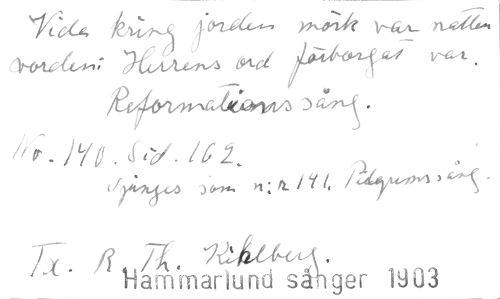 Vida kring jorden mörk var natten
vorden: Herrens ord förborgat var.
Reformationssång.
No. 140. Sid. 162.
Sjunges som n:r 141. Pilgrimssång.
Tx. R. Th. Kihlberg.
Hammarlund sånger 1903